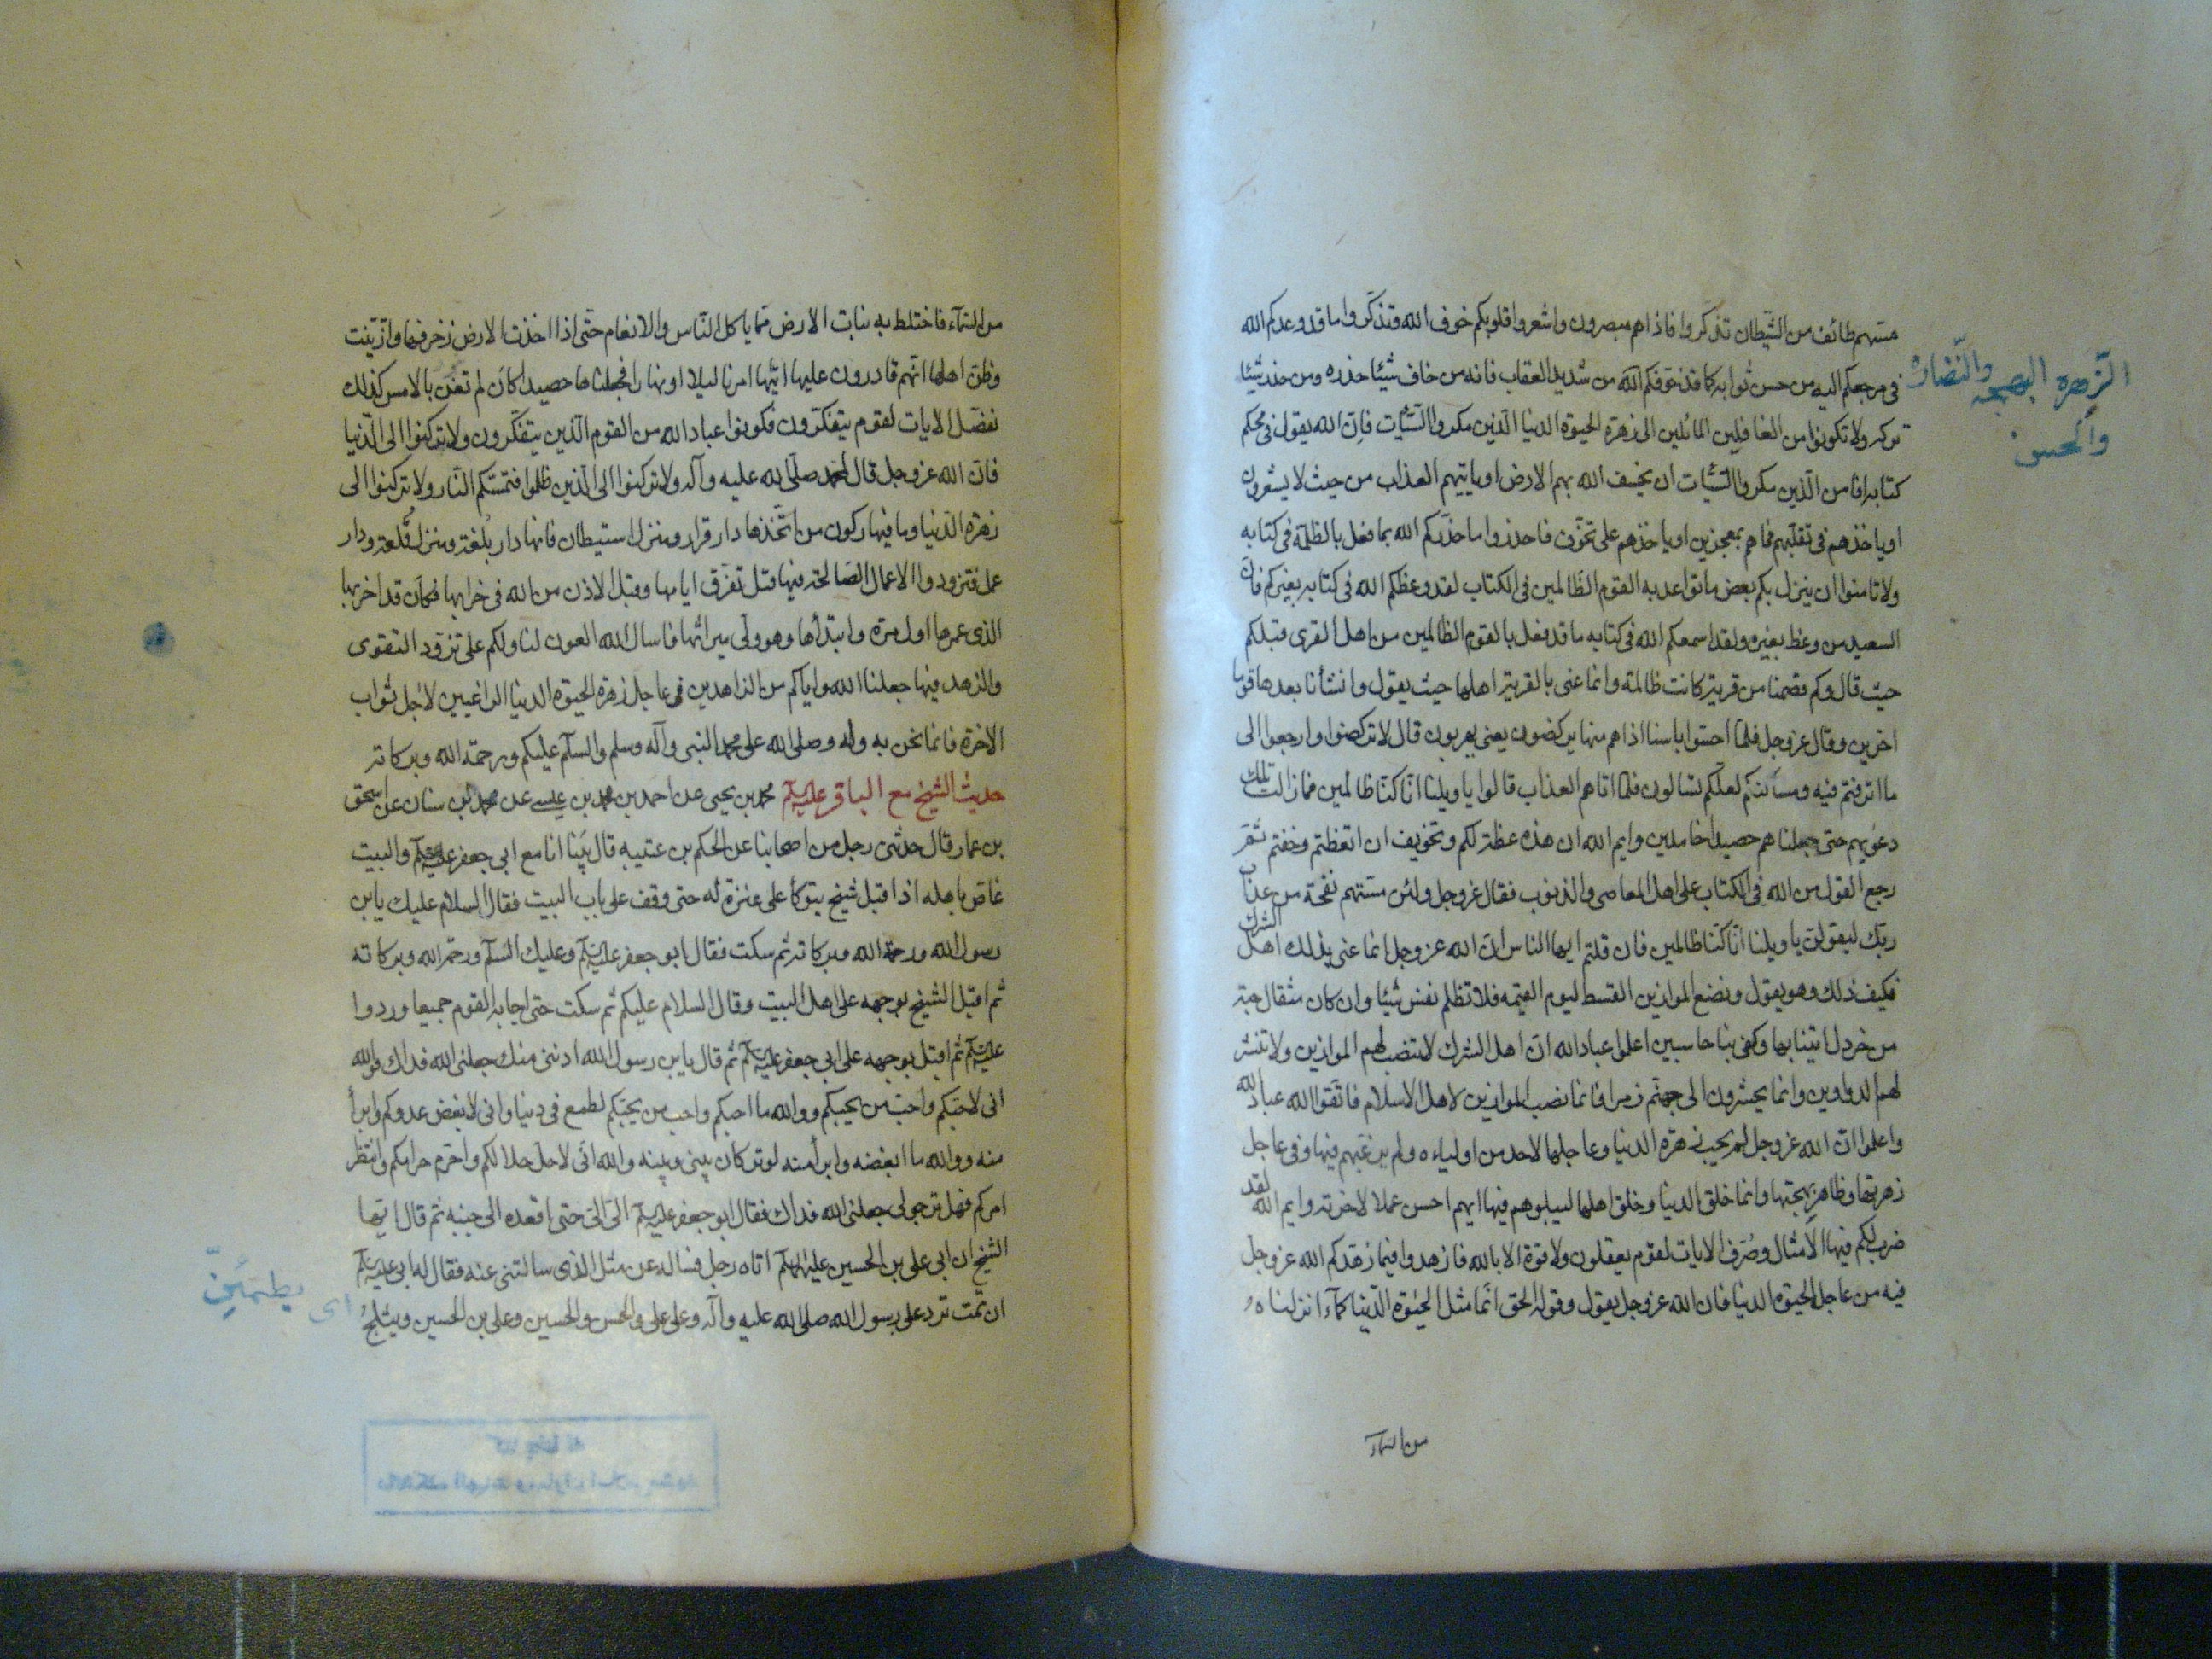 مسّهم طائف من الشّيطان تذكّروا فاذاهم مبصرون واشعروا قلوبكم خوف الله وتذكّروا ما قد وعدكم الله
فى مرجعكم اليه من حسن ثوابه كما قد خوّفكم الله من شديد العقاب فانه من خاف شيئا حذره ومن حذر شيئا
تركه ولا تكونوا من الغافلين المائلين الى زهرة الحيوة الدنيا الّذين مكروا السّيّئات فانّ الله يقول فى محكم
كتابه افامن الّذين مكروا السّيّئات ان يخسف الله بهم الارض او ياتيهم العذاب من حيث لا يشعرون
او ياخذهم فى تقلّبهم فما هم بمعجزين او ياخذهم على تخوّف فاحذروا ما حذّركم الله بما فعل بالظلمة فى كتابه
ولا تامنوا ان ينزل بكم بعض ما تواعد به القوم الظّالمين فى الكتاب لقد وعظكم الله فى كتابه بغيركم فانّ
السعيد من وعظ بغيره ولقد اسمعكم الله فى كتابه ما قد فعل بالقوم الظالمين من اهل القرى قبلكم
حيث قال وكم قصمنا من قرية كانت ظالمة وانما عنى بالقرية اهلها حيث يقول وانشأنا بعدها قوما
اخرين وقال عز وجل فلمّا احسّوا باسنا اذا هم منها يركضون يعنى يهربون قال لا تركضوا وارجعوا الى
ما اترفتم فيه ومساكنكم لعلّكم تسالون فلمّا اتاهم العذاب قالوا يا ويلنا انّا كنّا ظالمين فما زالت تلك
دعويهم حتى جعلناهم حصيدا خامدين وايم الله ان هذه عظة لكم وتخويف ان اتعظتم وخفتم ثمّ
رجع القول من الله فى الكتاب على اهل المعاصى والذنوب فقال عز وجل ولئن مسّتهم نفحة من عذاب
ربّك ليقولنّ يا ويلنا انّا كنّا ظالمين فان قلتم ايها الناس انّ الله عز وجل انما عنى بذلك اهل الشرك
فكيف ذلك وهو يقول ونضع الموازين القسط ليوم القيمة فلا تظلم نفس شيئا وان كان مثقال حبّة
من خردل اتينا بها وكفى بنا حاسبين اعلموا عباد الله انّ اهل الشرك لا ينصب لهم الموازين ولا تنشر
لهم الدواوين وانما يحشرون الى جهنّم زمرا فانما نصب الموازين لاهل الاسلام فاتّقوا الله عباد الله
واعلموا انّ الله عز وجل لم يحبّ زهرة الدنيا وعاجلها لاحد من اولياءه ولم يرغّبهم فيها وفى عاجل
زهرتها وظاهر بهجتها وانما خلق الدنيا وخلق اهلها ليبلوهم فيها ايهم احسن عملا لاخرته وايم الله لقد
ضرب لكم فيها الامثال وصُرّف الايات لقوم يعقلون ولا قوة الا بالله فازهدوا فيما زهّدكم الله عز وجل
فيه من عاجل الحيوة الدنيا فان الله عز وجل يقول وقوله الحق انّما مثل الحيٰوة الدّنيا كمآء انزلناه
من السمآء
الزّهرة البهجة والنّضارة
والحسن
من السّمآء فاختلط به نبات الارض ممّا ياكل النّاس والانعام حتّى اذا اخذت الارض زخرفها وازّيّنت
وظنّ اهلها انّهم قادرون عليها اتيٰها امرنا ليلا او نهارا فجعلناها حصيدا كان لم تغن بالامس كذلك
نفصّل الايات لقوم يتفكّرون فكونوا عباد الله من القوم الّذين يتفكّرون ولا تركنوا الى الدّنيا
فانّ الله عز وجل قال لمحمد صلّى الله عليه وآله ولا تركنوا الى الّذين ظلموا فتمسّكم النّار ولا تركنوا الى
زهرة الدّنيا وما فيها ركون من اتّخذها دار قرار ومنزل استيطان فانها دار بُلغة ومنزل قُلعة ودار
عمل فتزودوا الاعمال الصّالحة فيها قبل تفرّق ايامها وقبل الاذن من الله فى خرابها فكان قد اخربها
الذى عمرها اول مرة وابتدأها وهو ولّى ميراثها فاسال الله العون لنا ولكم على تزوّد التقوى
والزهد فيها جعلنا الله واياكم من الزاهدين فى عاجل زهرة الحيوة الدنيا الراغبين لاجل ثواب
الاخرة فانما نحن به وله وصلى الله على محمد النبى وآله وسلم والسلم عليكم ورحمة الله وبركاته
حديث الشيخ مع الباقر عليه السلم محمد بن يحيى عن احمد بن محمد بن عيسى عن محمد بن سنان عن اسحق
بن عمار قال حدثنى رجل من اصحابنا عن الحكم بن عتيبه قال بَيْنا انا مع ابى جعفر عليه السلم والبيت
غاصّ باهله اذا قبل شيخ يتوكأ على عنزة له حتى وقف على باب البيت فقال السلام عليك يا بن
رسول الله ورحمة الله وبركاته ثم سكت فقال ابو جعفر عليه السلم وعليك السّلم ورحمة الله وبركاته
ثم اقبل الشيخ بوجهه على اهل البيت وقال السلام عليكم ثم سكت حتى اجابه القوم جميعا وردوا
عليه السلم ثم اقبل بوجهه على ابى جعفر عليه السلم ثم قال يا بن رسول الله ادننى منك جعلنى الله فداك فوالله
انى لاحبّكم واحبّ من يحبّكم ووالله ما احبكم واحب من يحبّكم لطمع فى دنيا وانى لابغض عدوكم وابرأ
منه ووالله ما ابغضه وابرأ منه لوتر كان بينى وبينه والله انّى لاحلّ حلالكم واحرّم حرامكم وانتظر
امركم فهل ترجو لى جعلنى الله فداك فقال ابو جعفر عليه السلم الىّ الىّ حتى اقعده الى جنبه ثم قال ايّها
الشيخ ان ابى على بن الحسين عليهما السلم اتاه رجل فساله عن مثل الذى سالتنى عنه فقال له ابى عليه السلم
ان تمت ترد على رسول الله صلى الله عليه وآله وعلى على والحسن والحسين وعلى بن الحسين ويثلجُ
اى يطمئنّ